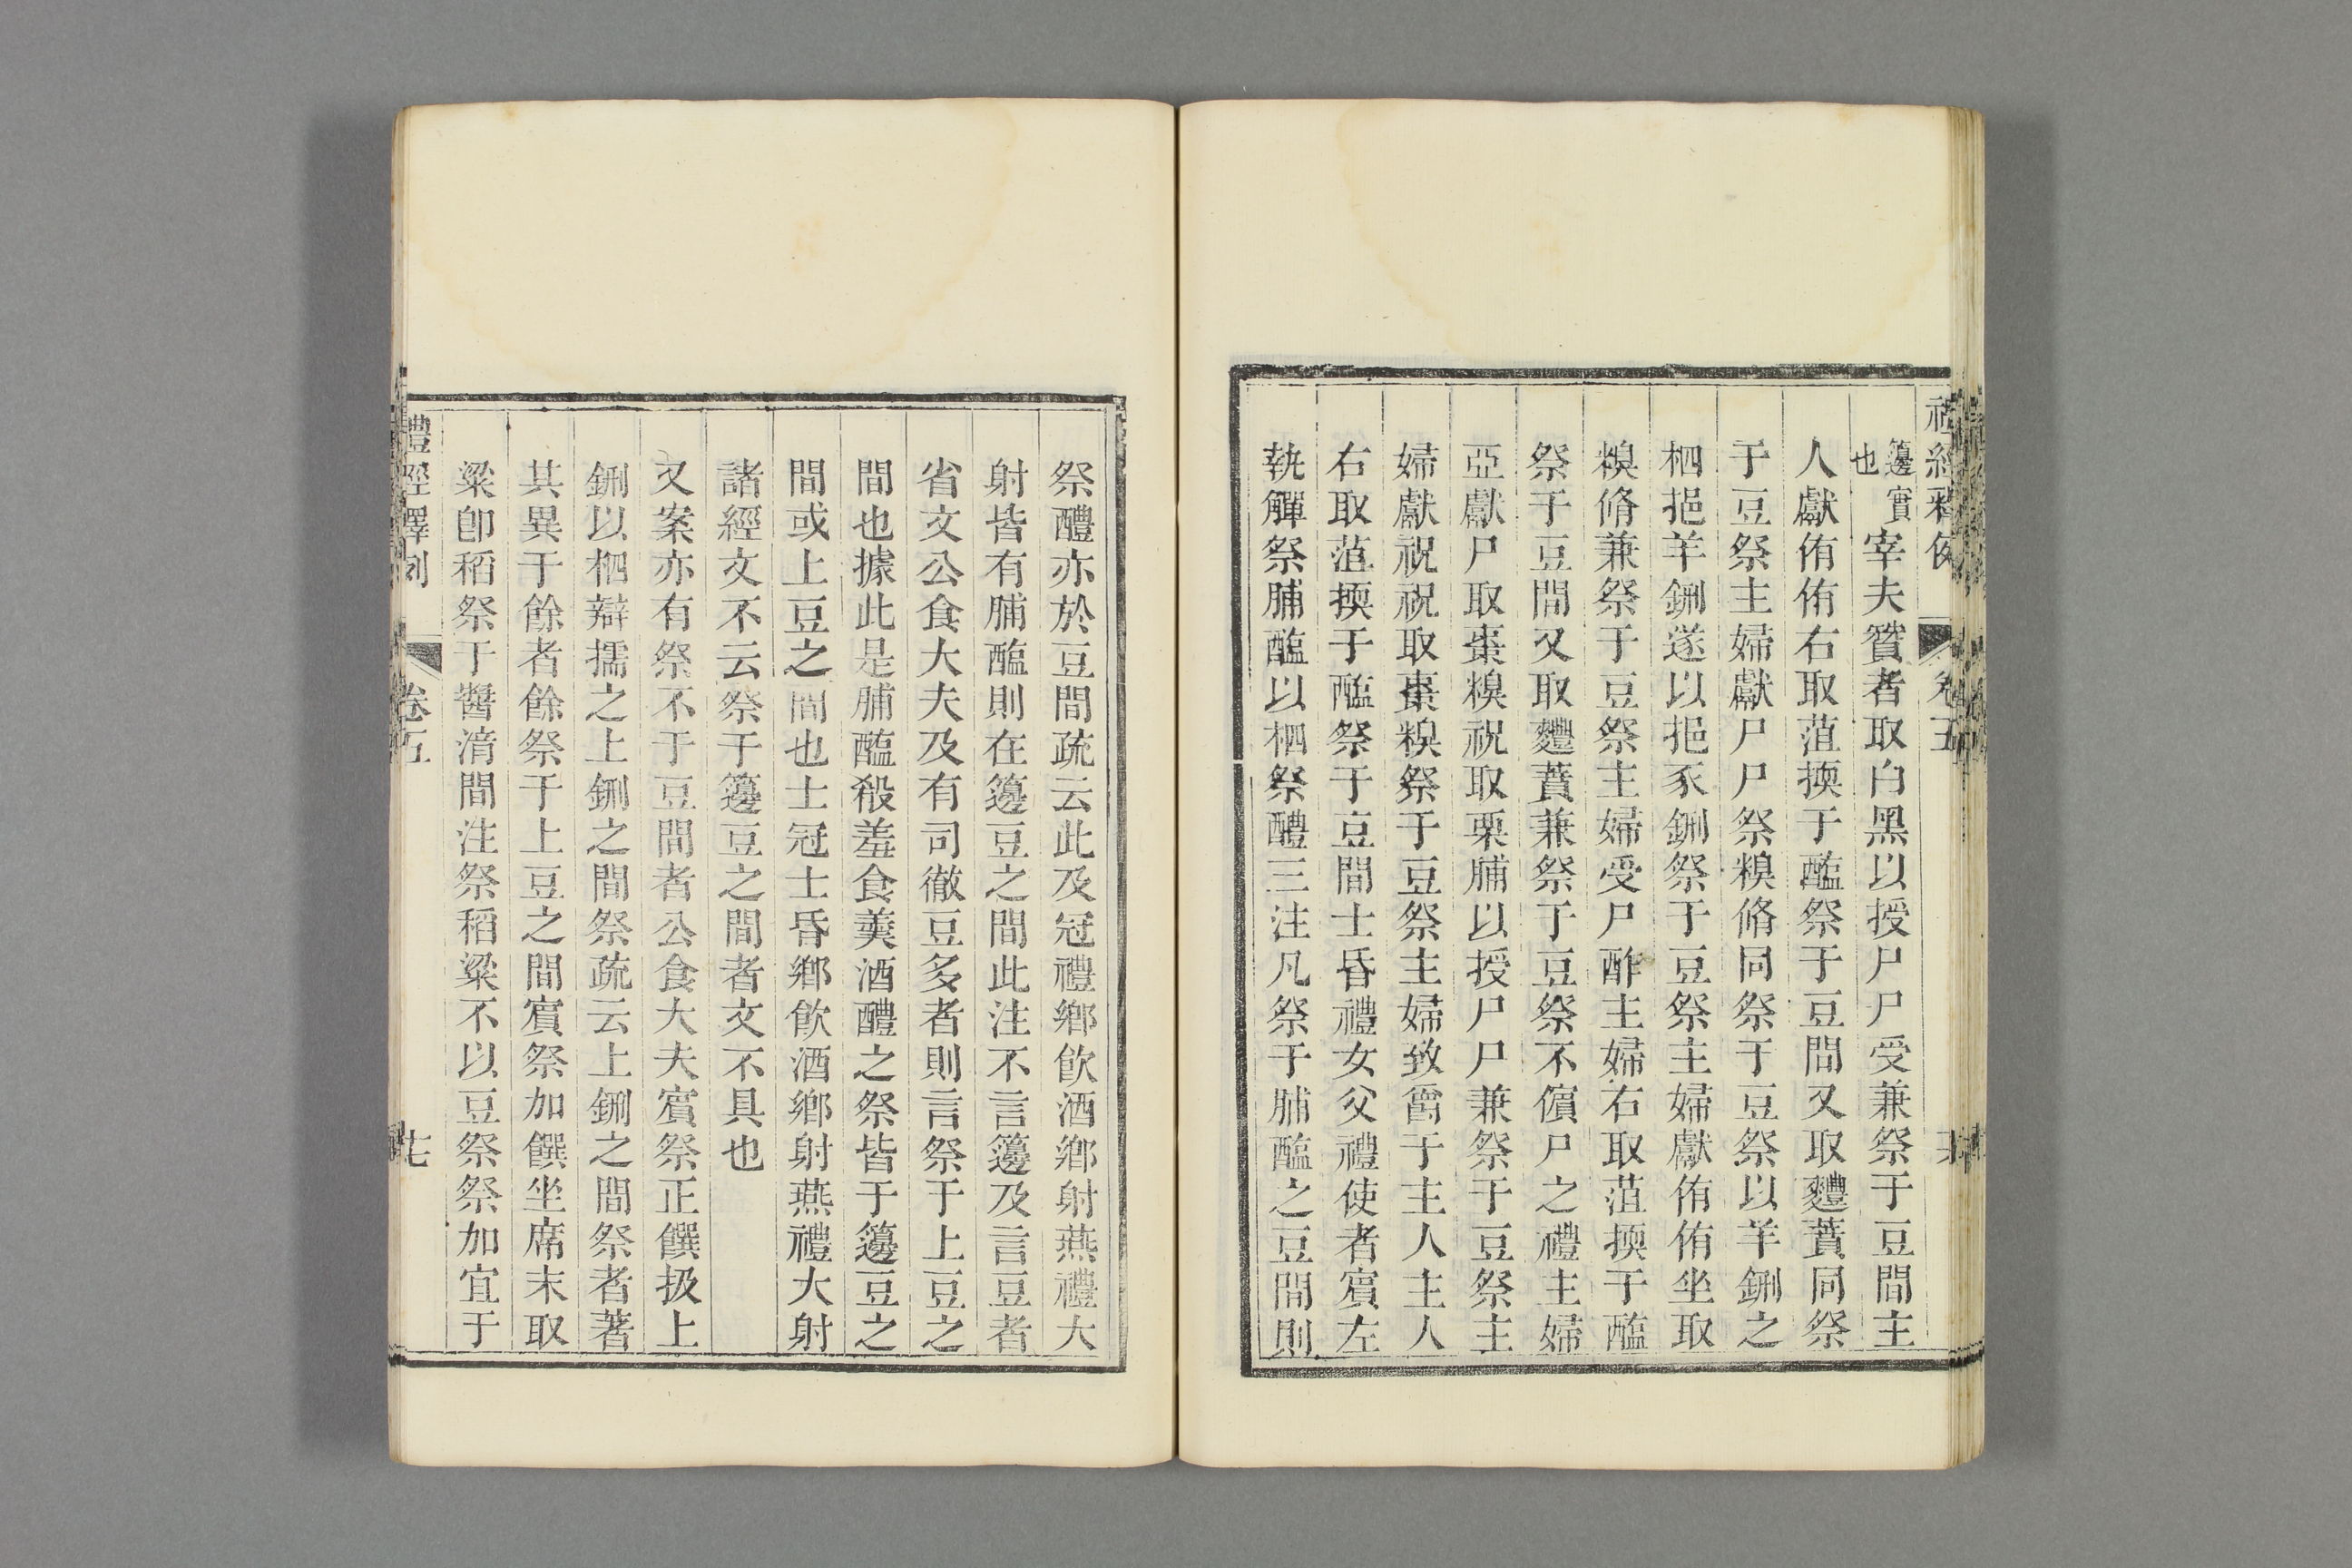 禮經釋例 卷五
籩實也宰夫贊者取白黑以授尸尸受兼祭于豆間主
人獻侑侑右取菹擩于醢祭于豆間又取麷蕡同祭
于豆祭主婦獻尸尸祭糗脩同祭于豆祭以羊鉶之
柶挹羊鉶遂以挹豕鉶祭于豆祭主婦獻侑侑坐取
糗脩兼祭于豆祭主婦受尸酢主婦右取菹擩于醢
祭于豆間又取麷蕡兼祭于豆祭不儐尸之禮主婦
亞獻尸取棗糗祝取栗脯以授尸尸兼祭于豆祭主
婦獻祝祝取棗糗祭于豆祭主婦致爵于主人主人
右取菹擩于醢祭于豆間士昏禮女父禮使者賓左
執觶祭脯醢以柶祭醴三注凡祭于脯醢之豆間則
祭醴亦於豆間疏云此及冠禮鄉飲酒鄉射燕禮大
射皆有脯醢則在籩豆之間此注不言籩及言豆者
省文公食大夫及有司徹豆多者則言祭于上豆之
間也據此是脯醢殽羞食羹酒醴之祭皆于籩豆之
間或上豆之間也士冠士昏鄉飲酒鄉射燕禮大射
諸經文不云祭于籩豆之間者文不具也
又案亦有祭不于豆間者公食大夫賓祭正饌扱上
鉶以柶辯擩之上鉶之間祭疏云上鉶之間祭者著
其異于餘者餘祭于上豆之間賓祭加饌坐席末取
粱卽稻祭于醬湆間注祭稻粱不以豆祭祭加宜于
禮經釋例 卷五 七